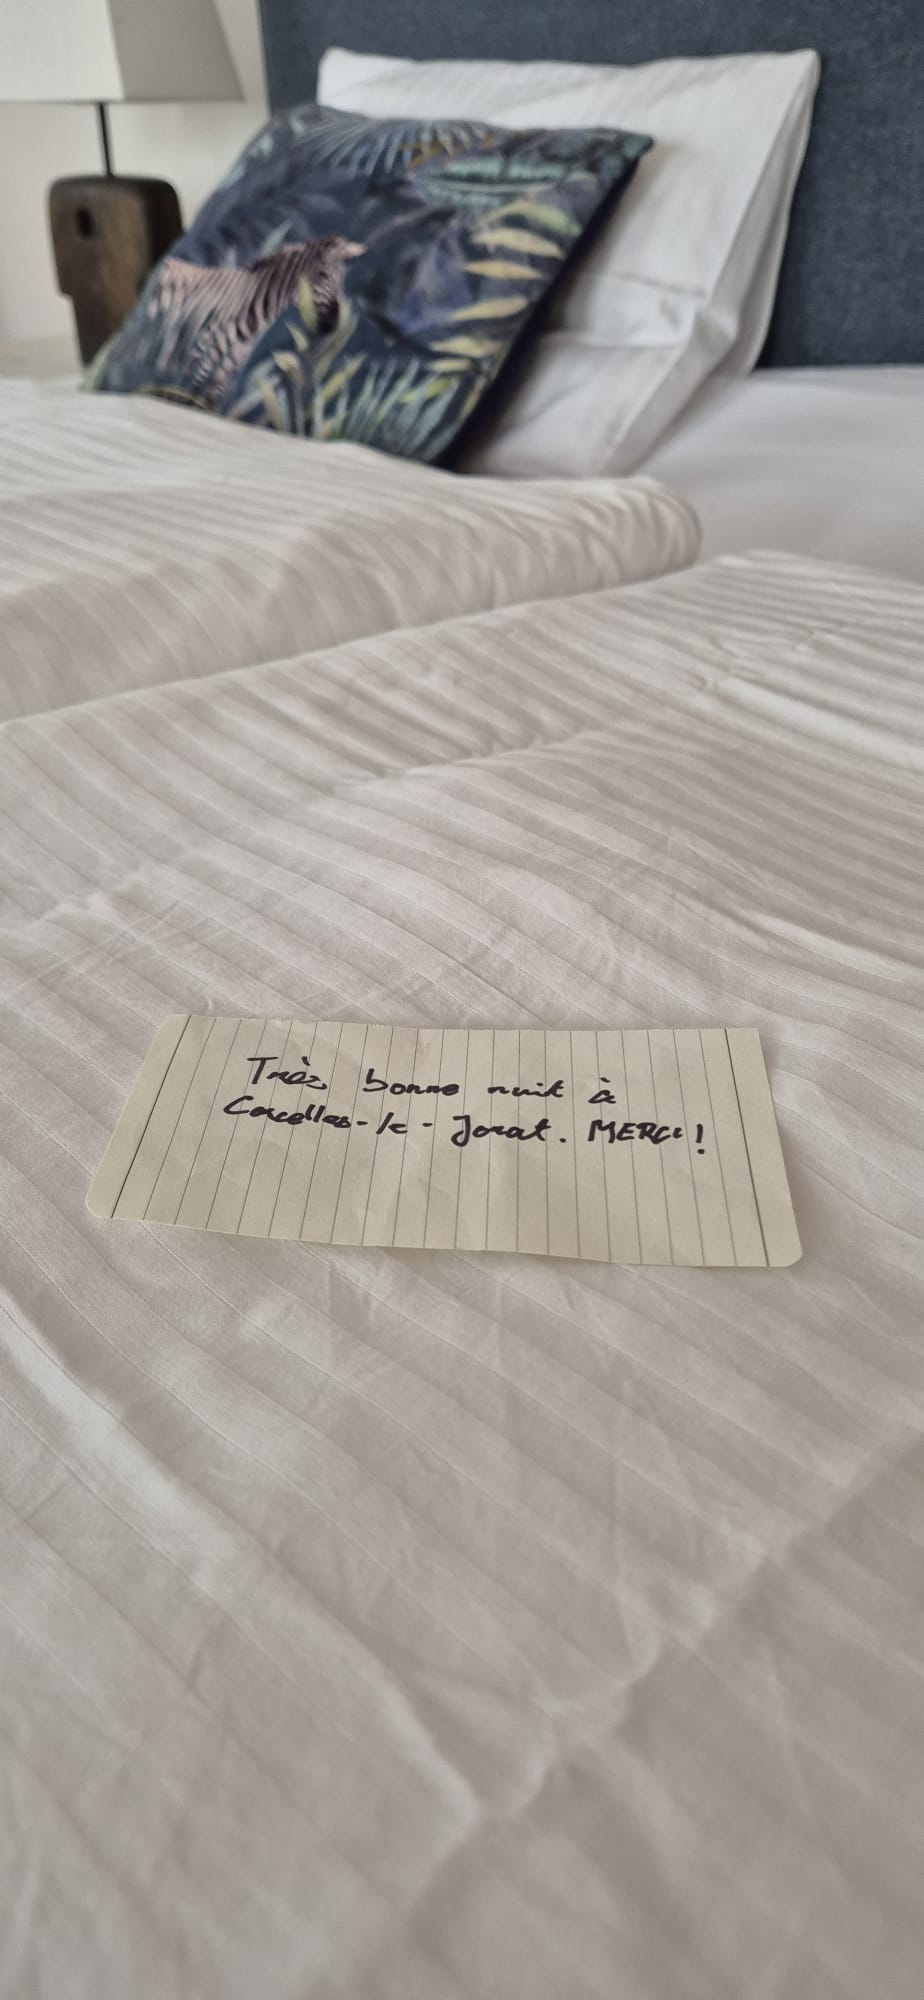 Très bonne nuit à
Corcelles-le-Jorat. MERCI!